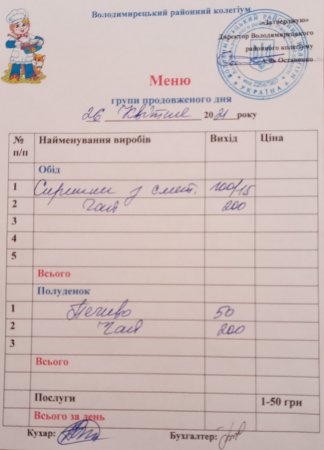 Володимирецький районний колегіум
«Затверджую»
Директор Володимирецького
районного колегіуму
А.В. Остапенко
УКРАЇНА
Меню
групи продовженого дня
26 квітня 2021 року
№ п/п Найменування виробів Вихід Ціна
Обід
1 Сирники з смет. 100/15
2 Чай 200
3
4
5
Всього
Полуденок
1 Печиво 50
2 Чай 200
3
Всього
Послуги 1-50 грн
Всього за день
Кухар: Бухгалтер: